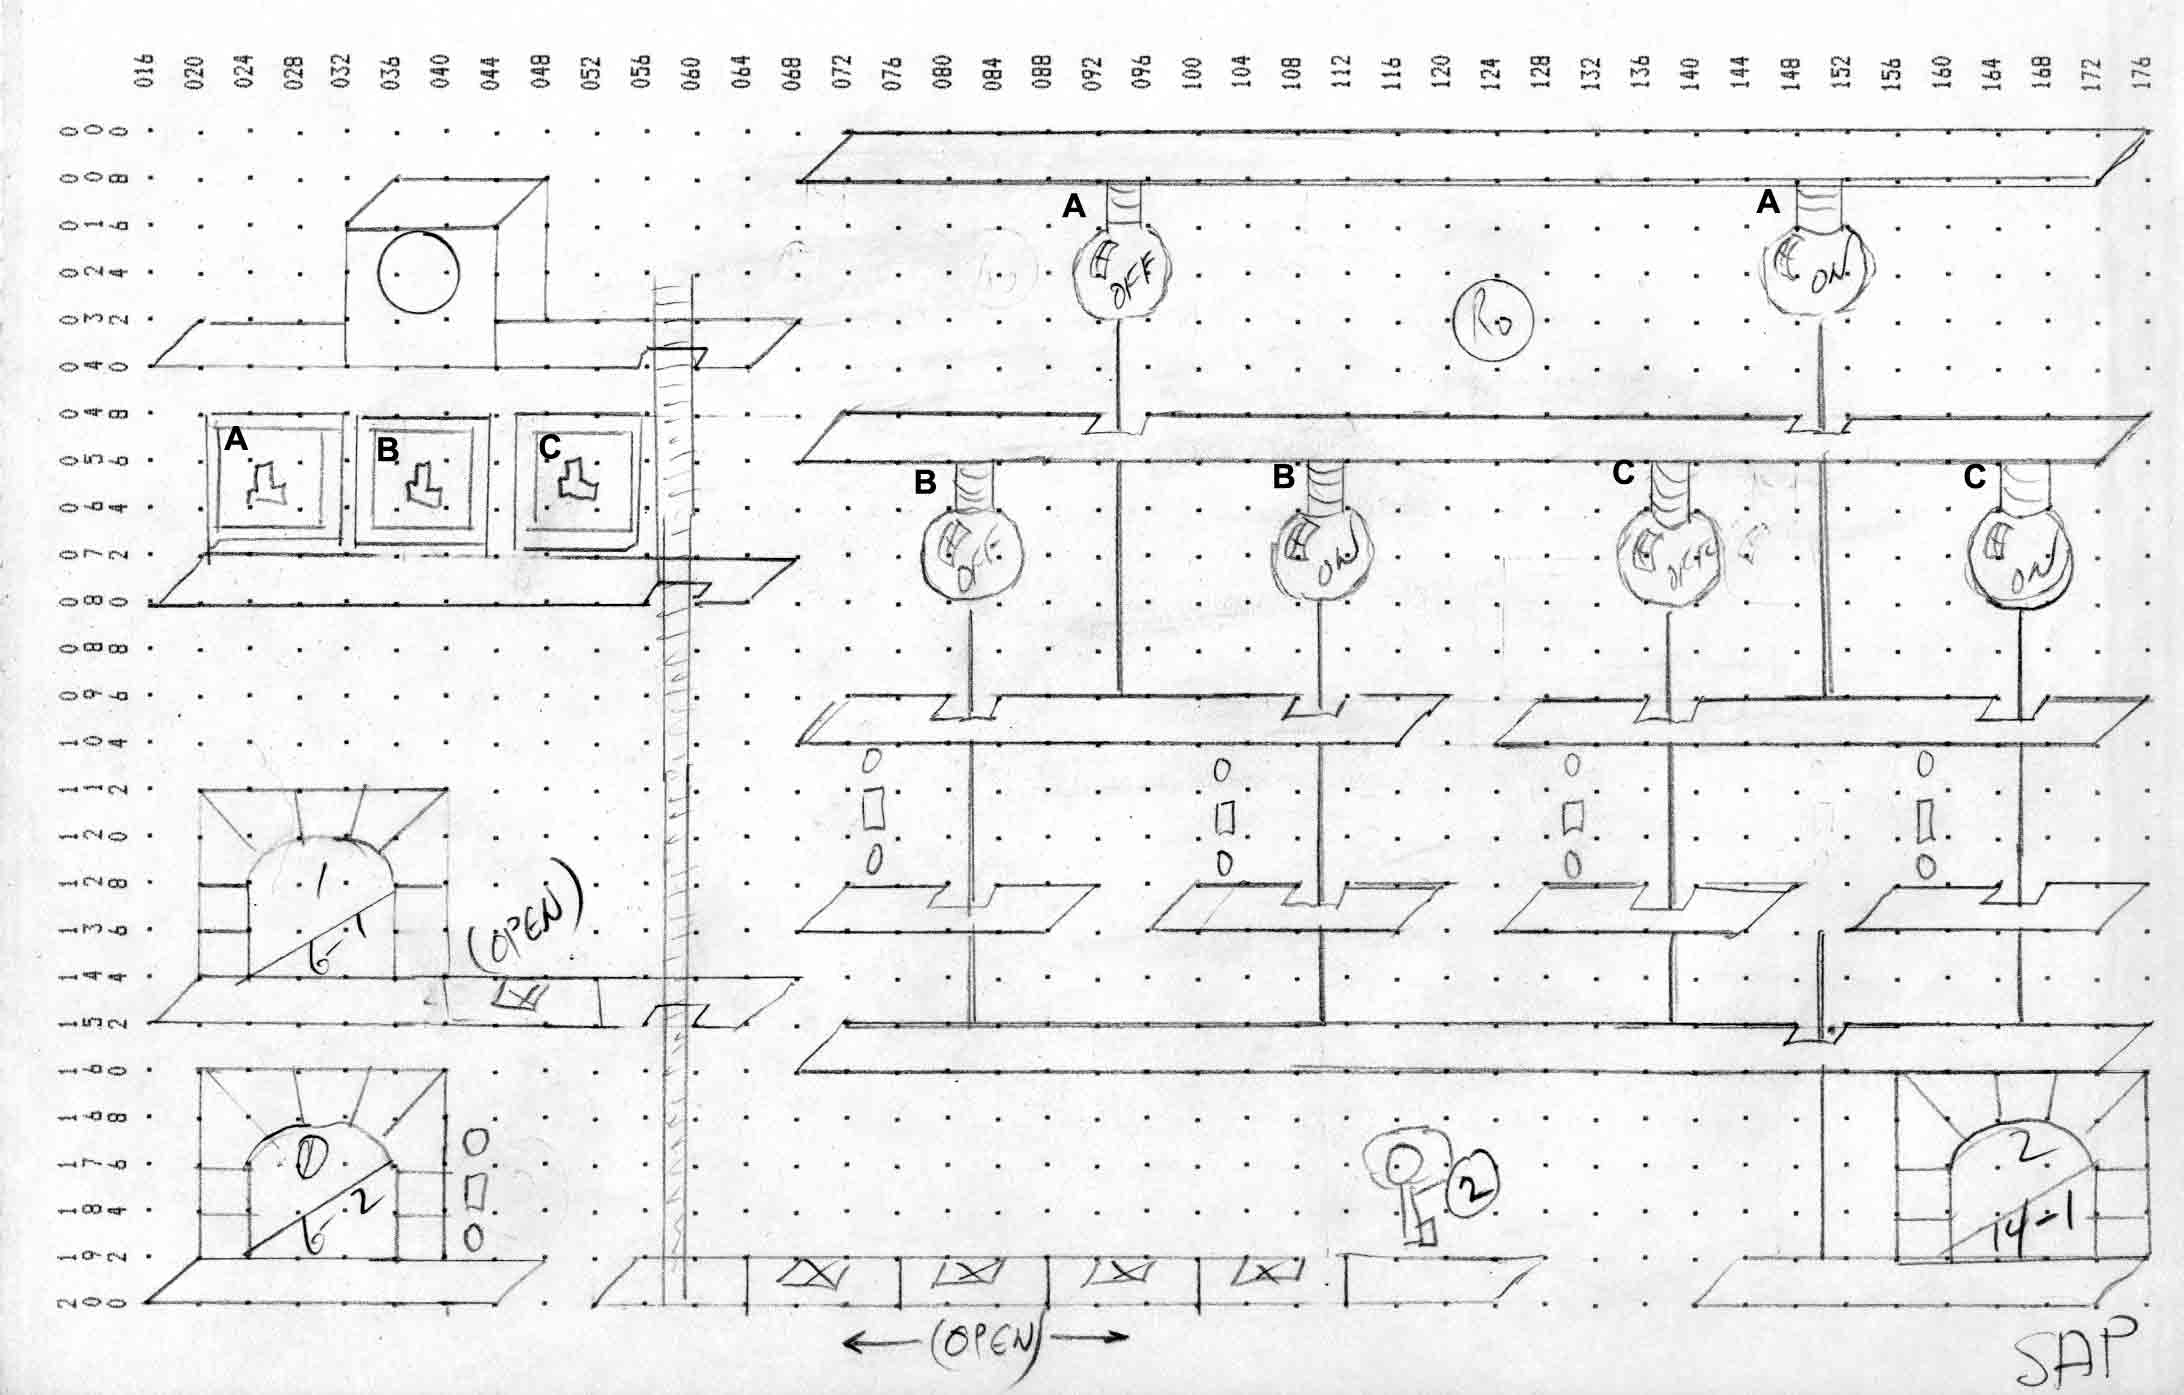 016 020 024 028 032 036 040 044 048 052 056 060 064 068 072 076 080 084 088 092 096 100 104 108 112 116 120 124 128 132 136 140 144 148 152 156 160 164 168 172 176
000
008
016
024
032
040
048
056
064
072
080
088
096
104
112
120
128
136
144
152
160
168
176
184
192
200
A
A
OFF
ON
Ro
A
B
C
B
B
C
C
OFF
ON
OFF
ON
1
6-1
(OPEN)
0
6-2
2
2
14-1
(OPEN)
SAP